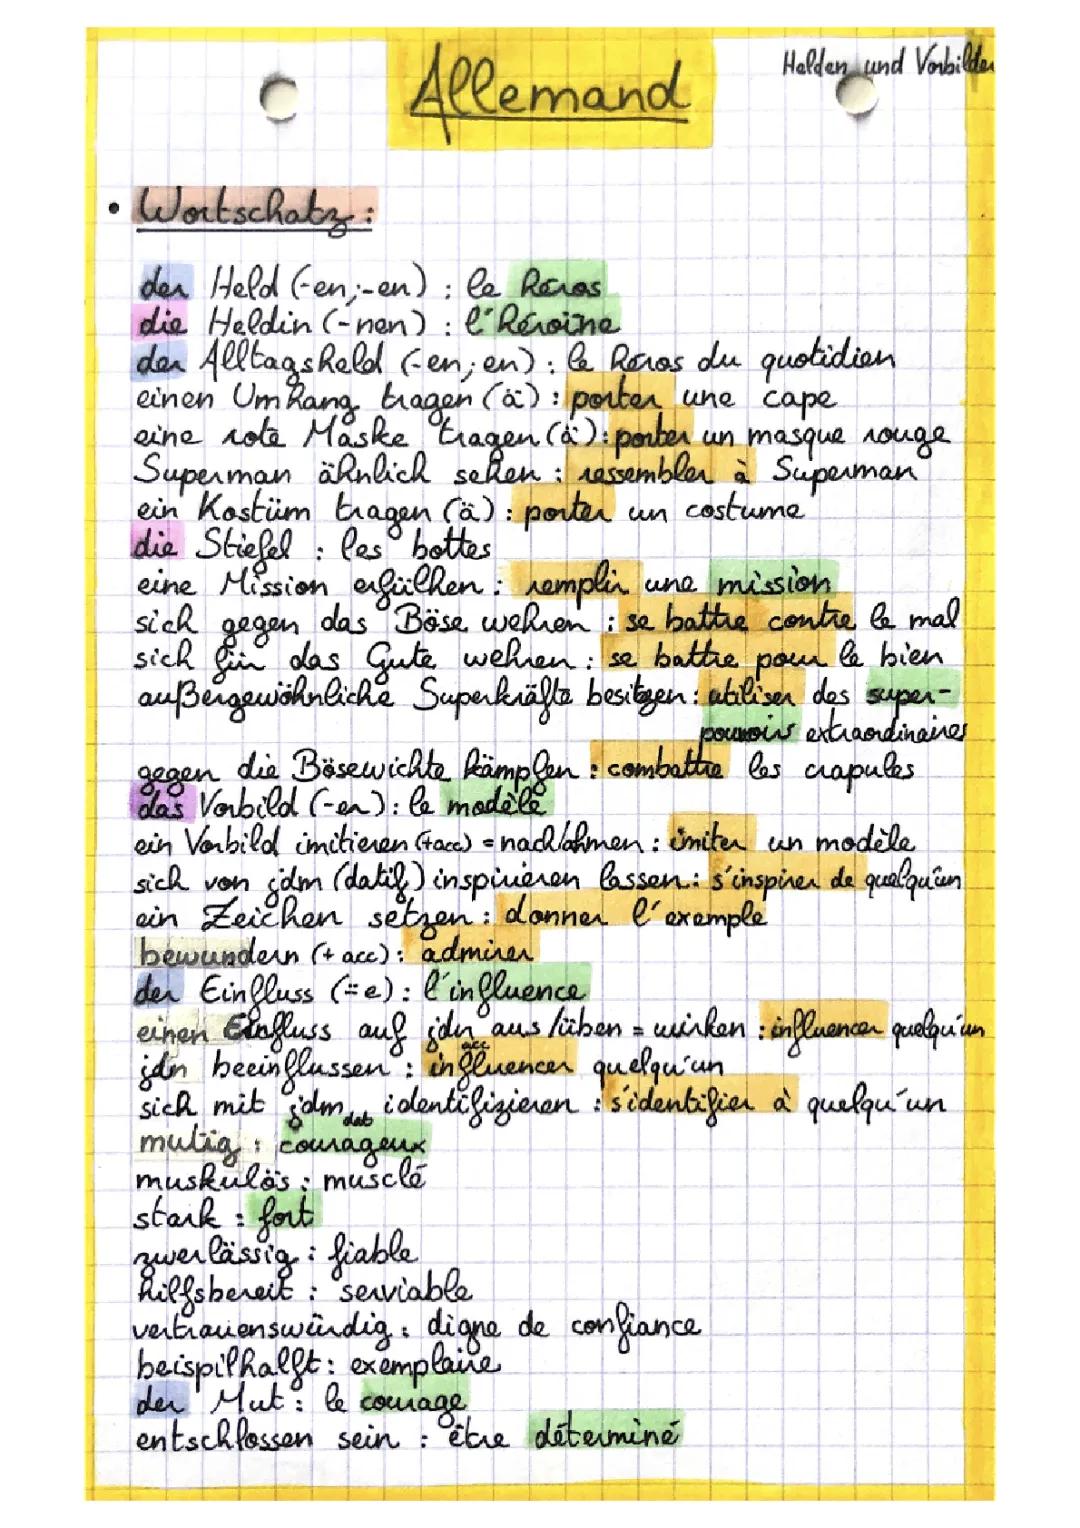 Allemand
Helden und Vorbilder
• Wortschatz :
der Held (-en;-en) : le héros
die Heldin (-nen) : l'héroïne
der Alltagsheld (-en; en) : le héros du quotidien
einen Umhang tragen (ä) : porter une cape
eine rote Maske tragen (ä) : porter un masque rouge
Superman ähnlich sehen : ressembler à Superman
ein Kostüm tragen (ä) : porter un costume
die Stiefel : les bottes
eine Mission erfülhen : remplir une mission
sich gegen das Böse wehren : se battre contre le mal
sich für das Gute wehren : se battre pour le bien
außergewöhnliche Superkräfte besitzen : utiliser des super-
pouvoirs extraordinaires
gegen die Bösewichte kämpfen : combattre les crapules
das Vorbild (-er) : le modèle
ein Vorbild imitieren (+acc) = nach/ahmen : imiter un modèle
sich von jdm (datif) inspirieren lassen : s'inspirer de quelqu'un
ein Zeichen setzen : donner l'exemple
bewundern (+ acc) : admirer
der Einfluss (⸚e) : l'influence
einen Einfluss auf jdn aus/üben = wirken : influencer quelqu'un
acc
jdn beeinflussen : influencer quelqu'un
sich mit jdm identifizieren : s'identifier à quelqu'un
dat
mutig : courageux
muskulös : musclé
stark : fort
zuverlässig : fiable
hilfsbereit : serviable
vertrauenswürdig : digne de confiance
beispilhalft : exemplaire
der Mut : le courage
entschlossen sein : être déterminé